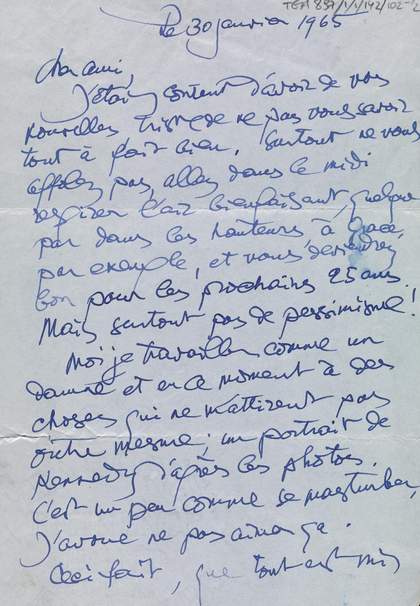 TGA 897/1/1/142/102-2
Le 30 janvier 1965
Cher ami,
J'étais content d'avoir de vos
nouvelles, triste de ne pas vous savoir
tout à fait bien. Surtout ne vous
affolez pas, allez dans le midi
respirer l'air bienfaisant, quelque
part dans les hauteurs à Grasse,
par exemple, et vous deviendrez
bon pour les prochains 25 ans.
Mais surtout pas de pessimisme!
Moi je travaille comme un
damné et en ce moment à des
choses qui ne m'attirent pas
outre mesure; un portrait de
Kennedy d'après les photos.
C'est un peu comme se masturber,
J'avoue ne pas aimer ça.
Ceci fait, que tout est mis